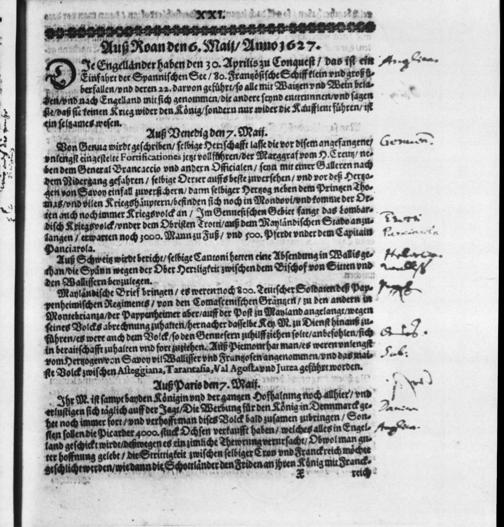 XXI.
Auß Roan den 6. Maij / Anno 1627.
Die Engelländer haben den 30. Aprilis zu Conquest / das ist ein
Einfahrt der Spannischen See / 80. Französische Schiff klein und groß
berfallen / und deren 22. darvon geführt / so alle mit Waitzen und Wein bela-
den / und nach Engelland mit sich genommen / die andere seynd entrunnen / und sagen
sie / daß sie keinen Krieg wider den König / sondern nur wider die Kauffleut führen / ist
ein seltzames wesen.
Auß Venedig den 7. Maij.
Von Genua wirdt geschriben / selbige Herrschafft lasse die vor disem angefangene /
unlengst eingestelte Fortificationes jetzt vollführen / der Marggraf vom H. Creutz / ne-
ben dem General Brancaccio und andern Officialen / seyn mit einer Galleren nach
dem Nidergang gefahren / selbige Oerter auffs beste zuversehen / und vor deß Hertzo-
gen von Savoy einfall zuversichern / dann selbiger Hertzog neben dem Printzen Tho-
maß / und vilen Kriegshäuptern / befinden sich noch in Mondovi / und komme der Or-
ten auch noch immer Kriegsvolck an / Im Genuesischen Gebiet fangt das Lombar-
disch Kriegsvolck / under dem Obristen Trotti / auß dem Mayländischen Stado anzu-
langen / erwarten noch 3000. Mann zu Fuß / und 500. Pferdt under dem Capitain
Panciarola.
Auß Schweitz wirdt bericht / selbige Cantoni hetten eine Absendung in Wallis ge-
than / die Spänn wegen der Ober Herrligkeit zwischen dem Bischof von Sitten und
den Wallissern beyzulegen.
Mayländische Brief bringen / es weren noch 800. Teutscher Soldaten deß Pap-
penheimischen Regiments / von den Comascenischen Gräntzen / zu den andern in
Montebrianza / der Pappenheimer aber / auff der Post zu Mayland angelangt / wegen
seines Volcks abrechnung zuhalten / hernacher dasselbe Key. M. zu Dienst hinauß zu-
führen / es were auch dem Volck / so den Genuesern zuziehen solte / anbefohlen / sich
in beraitschafft zuhalten und fort zuziehen. Auß Piemont hat man / es weren unlengst
vom Hertzogen von Savoy vil Wallisser und Frantzosen angenommen / und das mai-
ste Volck zwischen Asteggiana, Tarantasia, Val Agosta und Jurea geführt worden.
Auß Paris den 7. Maij.
Ihr M. ist sampt beyden Königin und der gantzen Hofhaltung noch allhier / und
erlustigen sich täglich auff der Jagt / Die Werbung für den König in Dennmarck ge-
het noch immer fort / und verhofft man dises Volck bald zusamen zubringen / Son-
sten sollen die Picarder 4000. stuck Ochsen verkaufft haben / welches alles in Engel-
land geschickt wird / deßwegen es ein zimliche Thewrung verursacht / Obwol man gu-
ter hoffnung gelebt / die Strittigkeit zwischen selbiger Cron und Franckreich möchte
geschlicht werden / wie dann die Schottländer den Friden an ihren König mit Franck-
X reich